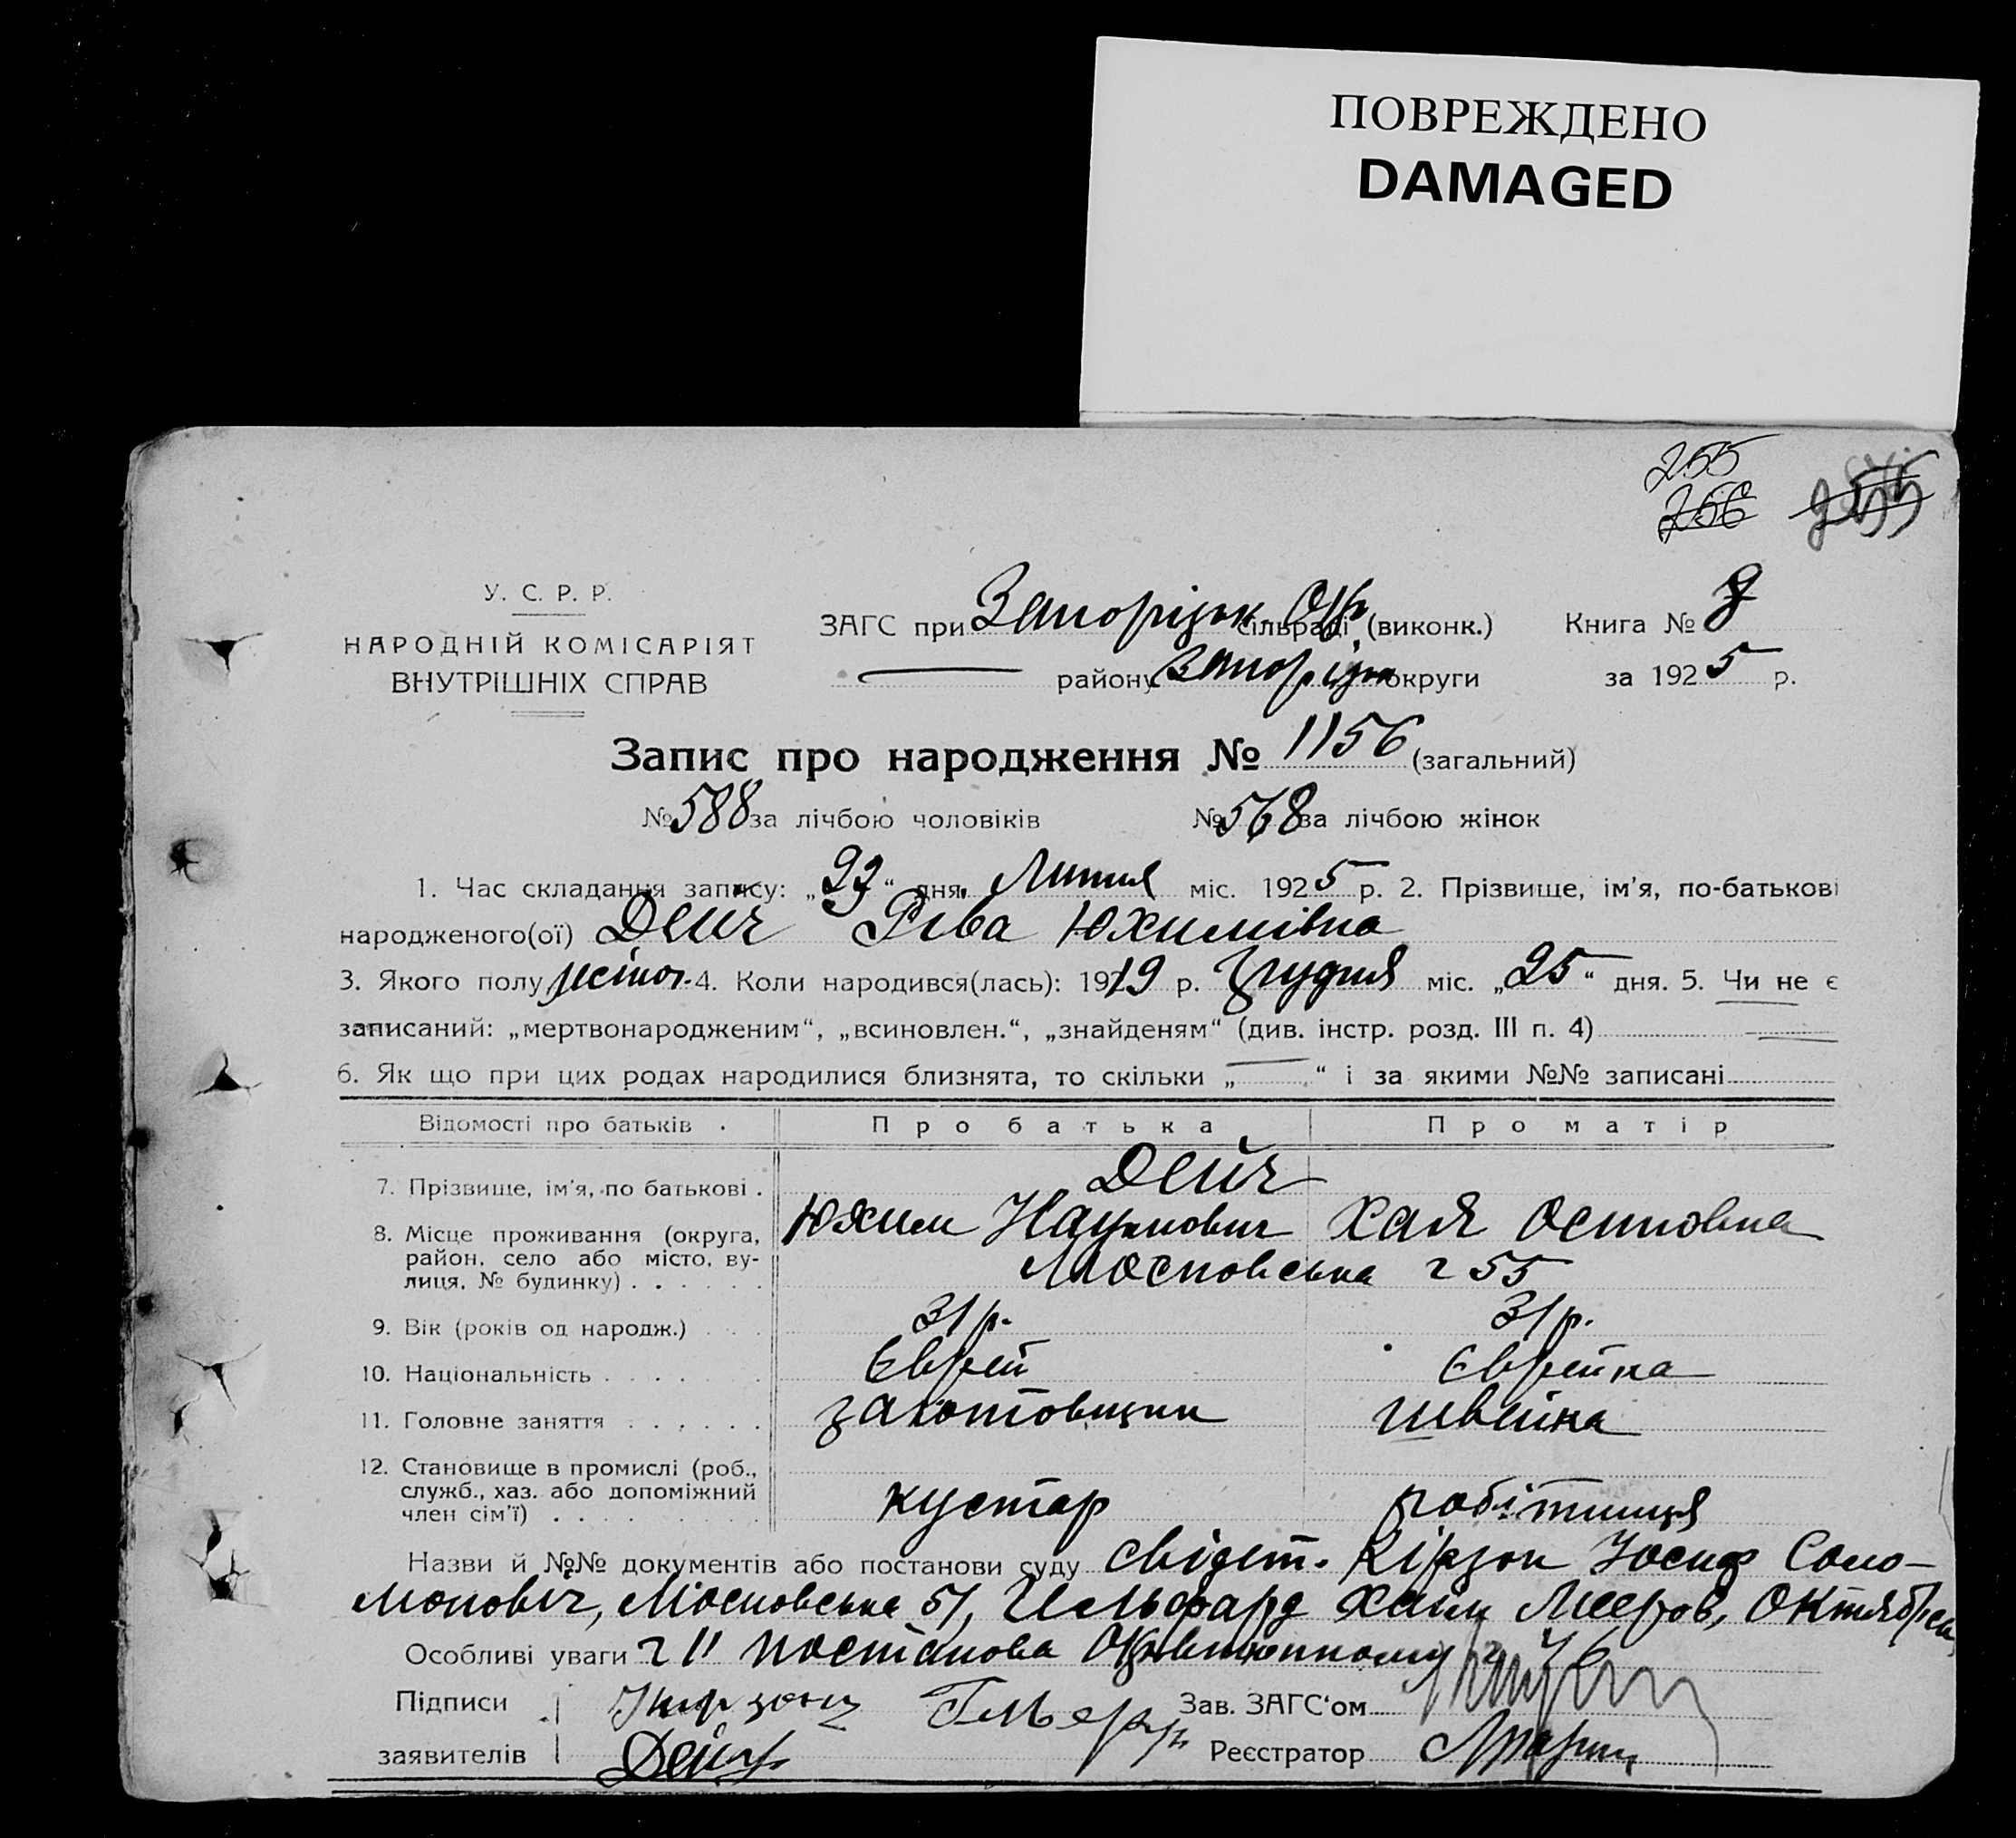 ПОВРЕЖДЕНО
DAMAGED
255
256
У. С. Р. Р.
НАРОДНІЙ КОМІСАРІЯТ
ВНУТРІШНІХ СПРАВ
ЗАГС при Запорізьк. Окр. сільраді (виконк.)
Книга №
району Запорізьк округи
за 1925 р.
Запис про народження № 1156 (загальний)
№ 588 за лічбою чоловіків № 568 за лічбою жінок
1. Час складання запису: „23“ дня Липня міс. 1925 р. 2. Прізвище, ім'я, по-батькові
народженого(ої) Дейч Рива Юхимівна
3. Якого полу жіноч. 4. Коли народився(лась): 1919 р. Грудня міс. „25“ дня. 5. Чи не є
записаний: „мертвонародженим“, „всиновлен.“, „знайденям“ (див. інстр. розд. III п. 4)
6. Як що при цих родах народилися близнята, то скільки „—“ і за якими №№ записані
Відомості про батьків Про батька Про матір
7. Прізвище, ім'я, по батькові . Дейч
Юхим Наумович Хая Осиповна
8. Місце проживання (округа, район, село або місто, ву-
лиця, № будинку) . . . . . Московська 2 55
9. Вік (років од народж.) . . . 31 р. 31 р.
10. Національність . . . . . . Єврей Єврейка
11. Головне заняття . . . . . . заготовщик швейка
12. Становище в промислі (роб.,
служб., хаз. або допоміжний
член сім'ї) . . . . . . . кустар робітниця
Назви й №№ документів або постанови суду свідет. Кірзон Йосиф Соло-
монович, Московська 51, Хаим Мееров, Октябрськ
Особливі уваги 2 11 постанова
Підписи
заявителів Дейч
Зав. ЗАГС'ом
Реєстратор